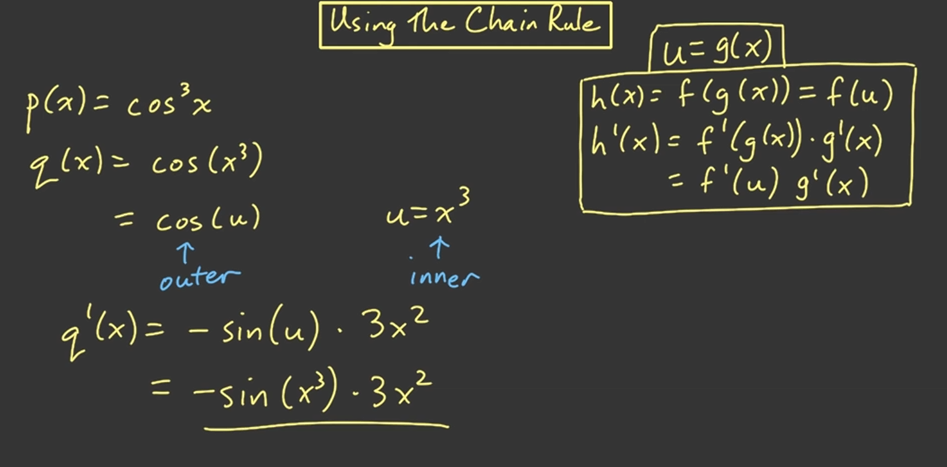 Using The Chain Rule
u = g(x)
h(x) = f(g(x)) = f(u)
h'(x) = f'(g(x)) · g'(x)
= f'(u) g'(x)
p(x) = cos³x
q(x) = cos(x³)
= cos(u) u = x³
↑ ↑
outer inner
q'(x) = - sin(u) · 3x²
= -sin(x³) · 3x²